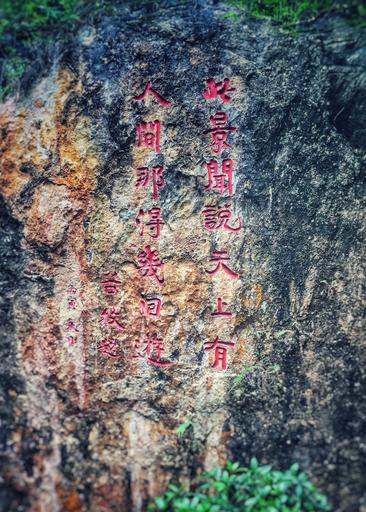 此景聞說天上有
人間那得幾回遊